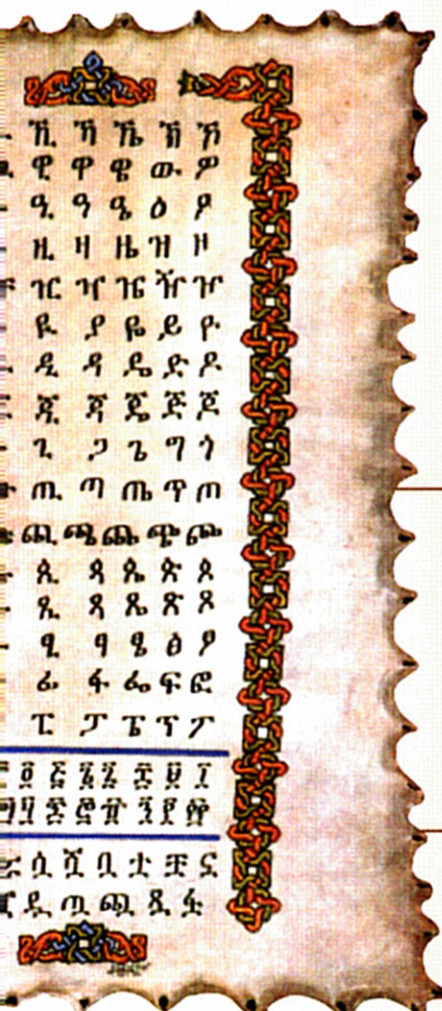 ኺ ኻ ኼ ኽ ኾ
ዊ ዋ ዌ ው ዎ
ዒ ዓ ዔ ዕ ዖ
ዚ ዛ ዜ ዝ ዞ
ዢ ዣ ዤ ዥ ዦ
ዪ ያ ዬ ይ ዮ
ዲ ዳ ዴ ድ ዶ
ጂ ጃ ጄ ጅ ጆ
ጊ ጋ ጌ ግ ጎ
ጢ ጣ ጤ ጥ ጦ
ጪ ጫ ጬ ጭ ጮ
ጲ ጳ ጴ ጵ ጶ
ጺ ጻ ጼ ጽ ጾ
ፂ ፃ ፄ ፅ ፆ
ፊ ፋ ፌ ፍ ፎ
ፒ ፓ ፔ ፕ ፖ
፬ ፭ ፮ ፯ ፰ ፱ ፲
፶ ፷ ፸ ፹ ፺ ፻ ፼
ሷ ሿ ቧ ቷ ቿ ኗ
ዷ ጧ ጯ ጿ ፏ